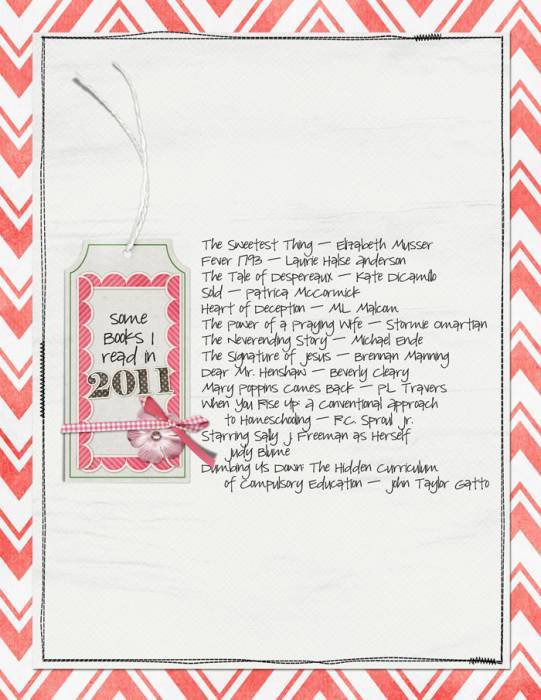 some
Books I
read in
2011
The Sweetest Thing — Elizabeth Musser
Fever 1793 — Laurie Halse Anderson
The Tale of Despereaux — Kate DiCamillo
Sold — Patricia McCormick
Heart of Deception — M.L. Malcom
The Power of a Praying Wife — Stormie Omartian
The Neverending Story — Michael Ende
The Signature of Jesus — Brennan Manning
Dear Mr. Henshaw — Beverly Cleary
Mary Poppins Comes Back — P.L. Travers
When You Rise Up: a Conventional approach
to Homeschooling — R.C. Sproul Jr.
Starring Sally J. Freeman as Herself
Judy Blume
Dumbing Us Down: The Hidden Curriculum
of Compulsory Education — John Taylor Gatto